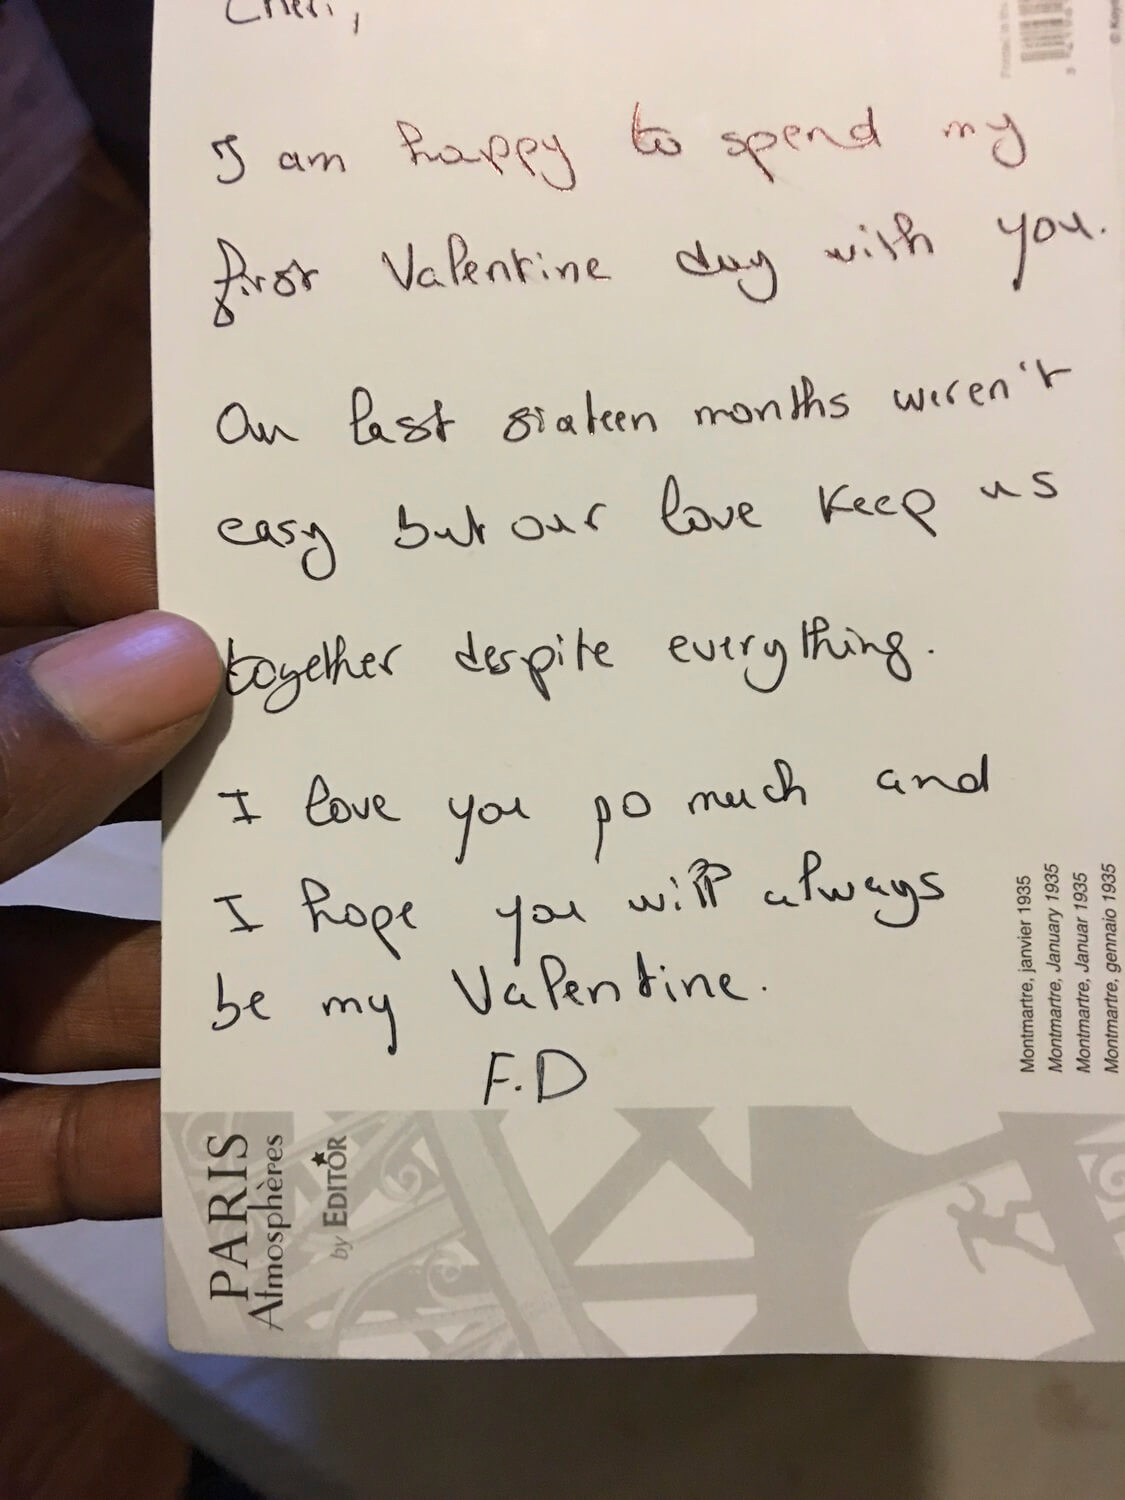 Cheri,
I am happy to spend my
first Valentine day with you.
Our last sixteen months weren't
easy but our love keep us
together despite everything.
I love you so much and
I hope you will always
be my Valentine.
F.D
Montmartre, janvier 1935
Montmartre, January 1935
Montmartre, Januar 1935
Montmartre, gennaio 1935
PARIS
Atmosphères
by EDITOR